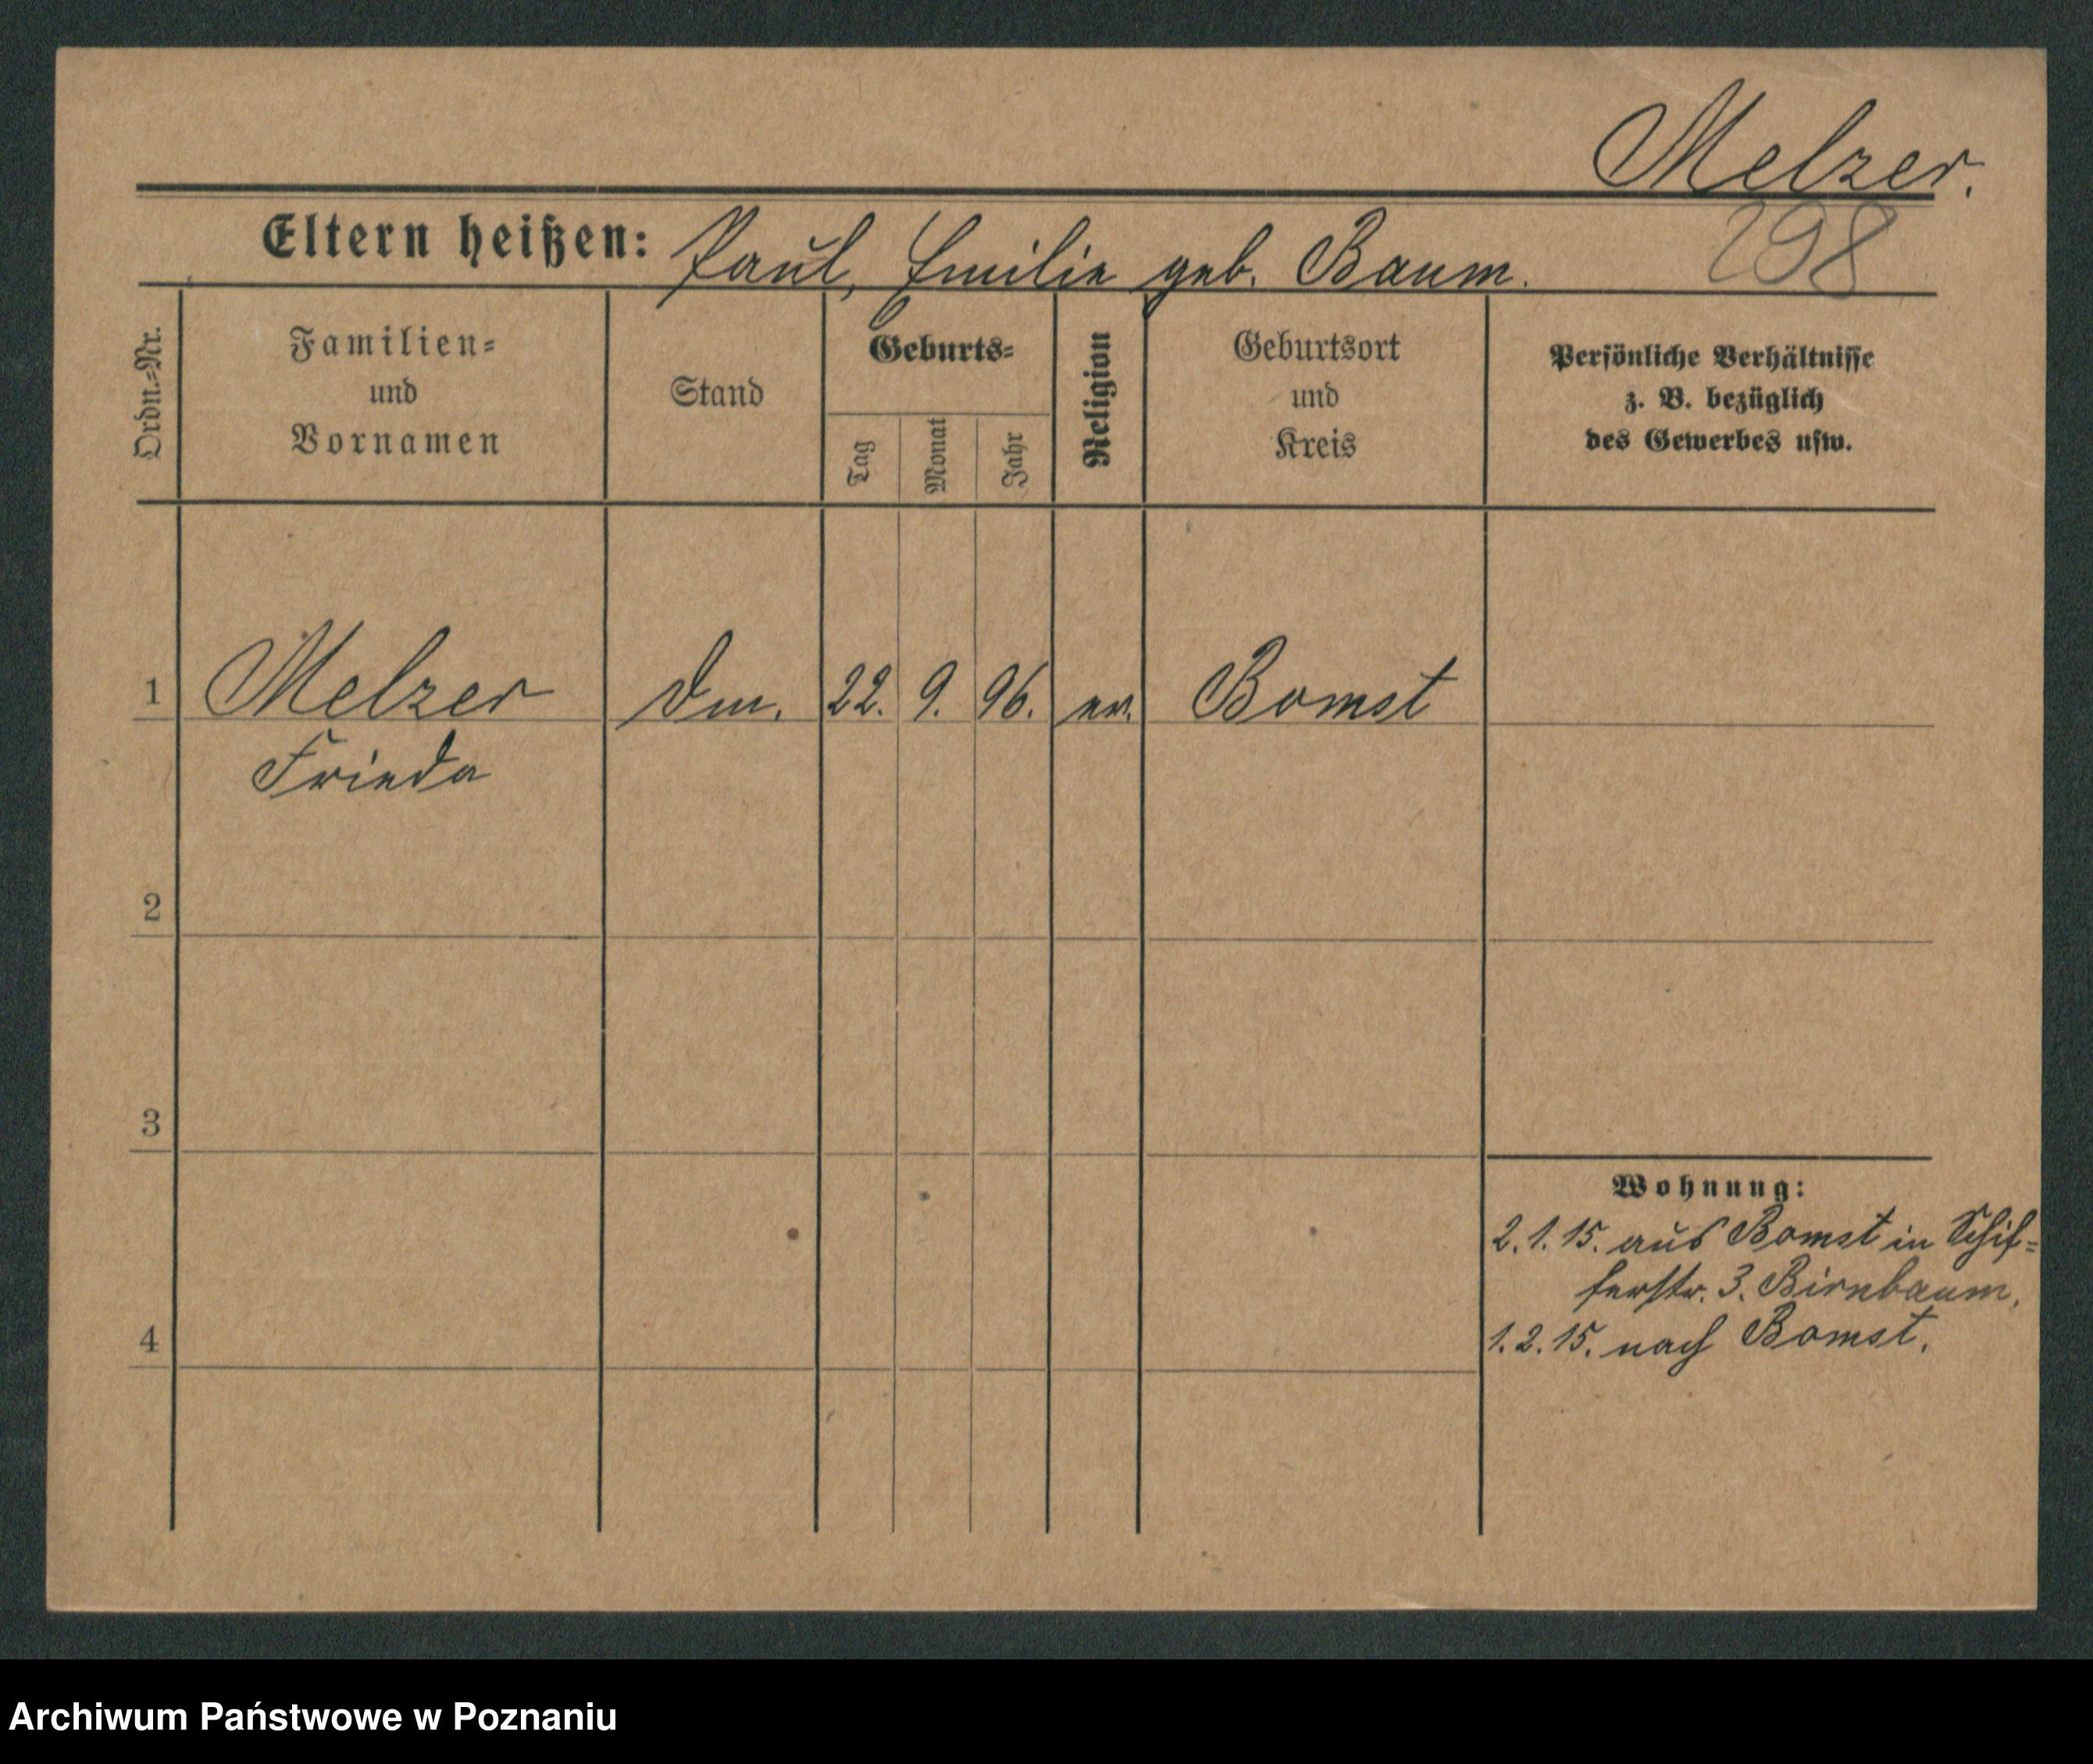 Melzer.
298
Eltern heißen: Paul, Emilie geb. Baum.
Ordn.-Nr.
Familien-
und
Vornamen
Stand
Geburts-
Tag
Monat
Jahr
Religion
Geburtsort
und
Kreis
Persönliche Verhältnisse
z. B. bezüglich
des Gewerbes usw.
1 Melzer 22. 9. 96. ev. Bomst
Frieda
2
3
4
Wohnung:
2. 1. 15. aus Bomst in Schif-
ferstr. 3. Birnbaum.
1. 2. 15. nach Bomst.
Archiwum Państwowe w Poznaniu